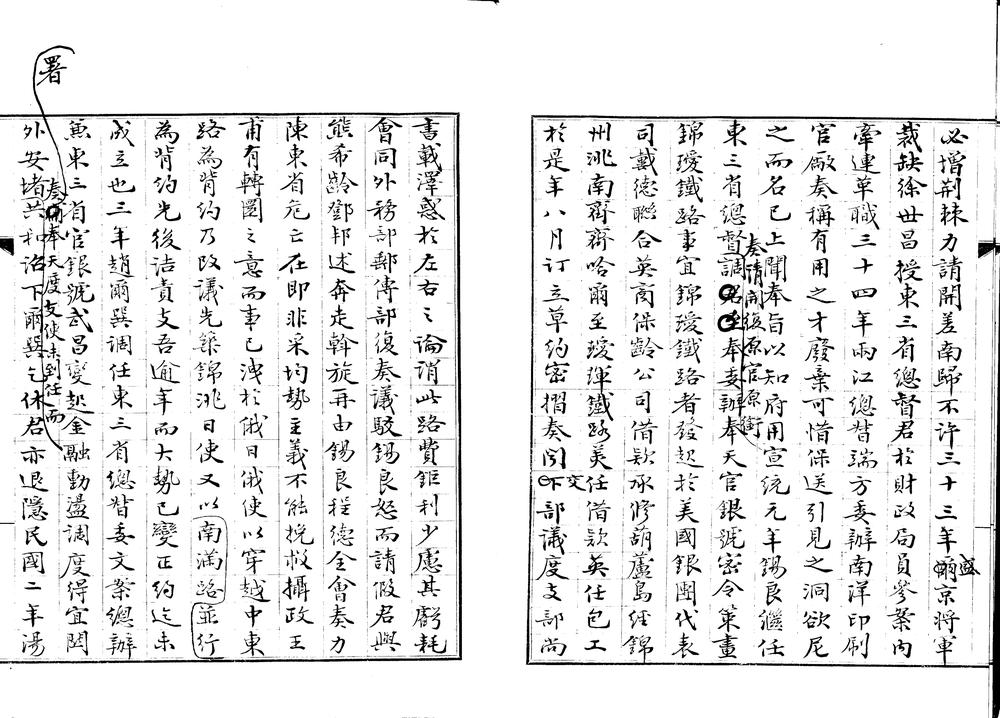 必增荆棘力請開差南歸不許三十三年盛京將軍
裁缺徐世昌授東三省總督君於財政局員參案內
牽連革職三十四年兩江總督端方委辦南洋印刷
官廠奏稱有用之才廢棄可惜保送引見之洞欲尼
之而名已上聞奉旨以知府用宣統元年錫良繼任
奏請開復原官原銜
東三省總督調奉委辦奉天官銀號密令策畫
錦璦鐵路事宜錦璦鐵路者發起於美國銀團代表
司戴德聯合英商保齡公司借款承修葫蘆島經錦
州洮南齊齊哈爾至璦琿鐵路美任借款英任包工
於是年八月訂立草約密摺奏聞下交部議度支部尚
書載澤惑於左右之論謂此路費鉅利少慮其虧耗
會同外務部郵傳部復奏議駁錫良怒而請假君與
熊希齡鄧邦述奔走斡旋再由錫良程德全會奏力
陳東省危亡在即非采均勢主義不能挽救攝政王
甫有轉圜之意而事已洩於俄日俄使以穿越中東
路為背約乃改議先築錦洮日使又以南滿路並行
為背約先後詰責支吾逾年而大勢已變正約迄未
成立也三年趙爾巽調任東三省總督委文案總辦
兼東三省官銀號武昌變起金融動盪調度得宜閧
署
奏補奉天度支使未到任而
外安堵共和詔下爾巽乞休君亦退隱民國二年湯